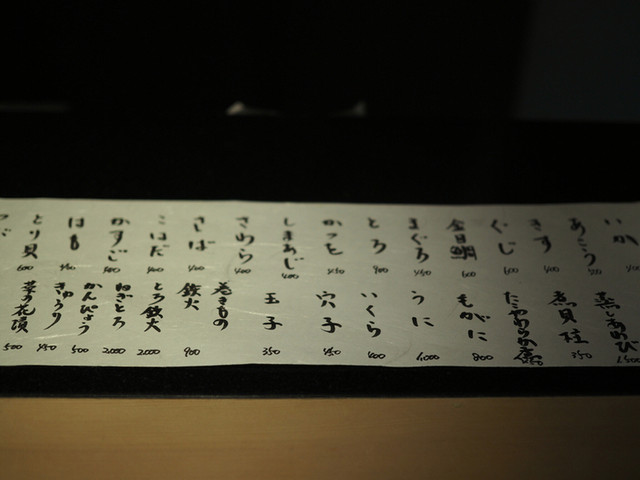 いか
あこう
きす
400
ぐじ
600
金目鯛
600
まぐろ
450
とろ
900
かつを
450
しまあじ
600
さわら
400
さば
400
こはだ
400
かすご
400
はも
とり貝
600
蒸しあわび
1,500
煮貝柱
350
もがに
800
うに
1,000
いくら
600
穴子
450
玉子
350
巻きもの
鉄火
900
とろ鉄火
2000
ねぎとろ
2000
かんぴょう
500
きゅうり
450
菜の花漬
500